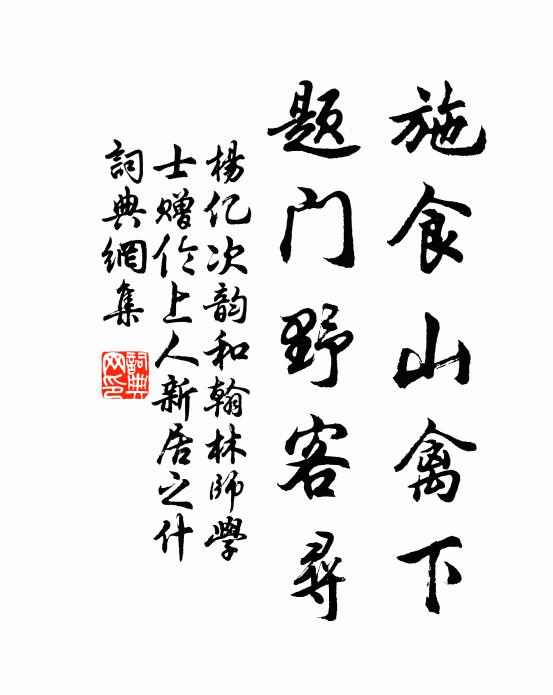 施食山禽下
题门野客尋
楊亿次韵和翰林師學
士赠伦上人新居之什
詞典網集
詞典网印